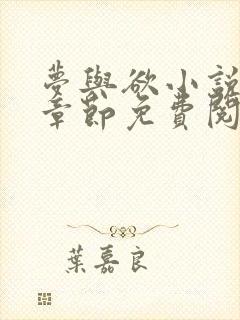 夢與欲小說
章節免費閱
葉嘉良